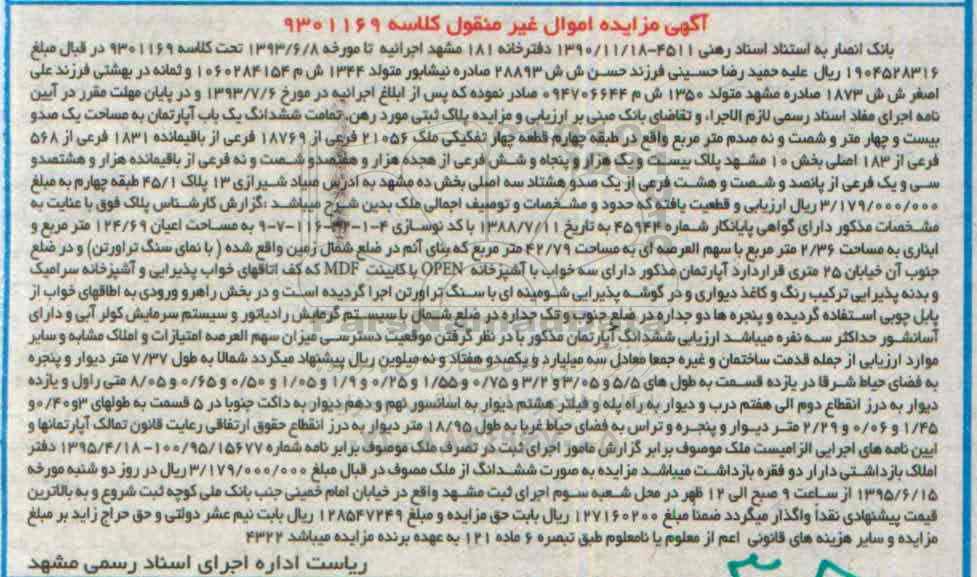 آگهی مزایده اموال غیر منقول کلاسه ۹۳۰۱۱۶۹
بانک انصار به استناد اسناد رهنی ۴۵۱۱-۱۳۹۰/۱۱/۱۸ دفترخانه ۱۸۱ مشهد اجرائیه تا مورخه ۱۳۹۳/۶/۸ تحت کلاسه ۹۳۰۱۱۶۹ در قبال مبلغ
۱۹۰۴۵۲۸۳۱۶ ریال علیه حمید رضا حسینی فرزند حسن ش ش ۲۸۸۹۳ صادره نیشابور متولد ۱۳۴۴ ش م ۱۰۶۰۲۸۴۱۵۴ و ثمانه در بهشتی فرزند علی
اصغر ش ش ۱۸۷۳ صادره مشهد متولد ۱۳۵۰ ش م ۰۹۴۷۰۶۶۴۴ صادر نموده که پس از ابلاغ اجرائیه در مورخ ۱۳۹۳/۷/۶ و در پایان مهلت مقرر در آیین
نامه اجرای مفاد اسناد رسمی لازم الاجراء و تقاضای بانک مبنی بر ارزیابی و مزایده پلاک ثبتی مورد رهن، تمامت ششدانگ یک باب آپارتمان به مساحت یک صدو
بیست و چهار متر و شصت و نه صدم متر مربع واقع در طبقه چهارم قطعه چهار تفکیکی ملک ۲۱۰۵۶ فرعی از ۱۸۷۶۹ فرعی از باقیمانده ۱۸۳۱ فرعی از ۵۶۸
فرعی از ۱۸۳ اصلی بخش ۱۰ مشهد پلاک بیست و یک هزار و پنجاه و شش فرعی از هجده هزار و هفتصدو شصت و نه فرعی از باقیمانده هزار و هشتصدو
سی و یک فرعی از پانصد و شصت و هشت فرعی از یک صدو هشتاد سه اصلی بخش ده مشهد به آدرس صیاد شیرازی ۱۳ پلاک ۴۵/۱ طبقه چهارم به مبلغ
۳/۱۷۹/۰۰۰/۰۰۰ ریال ارزیابی و قطعیت یافته که حدود و مشخصات و توصیف اجمالی ملک بدین شرح میباشد :گزارش کارشناس پلاک فوق با عنایت به
مشخصات مذکور دارای گواهی پایانکار شماره ۴۵۹۴۴ به تاریخ ۱۳۸۸/۷/۱۱ با کد نوسازی ۹-۷-۱۱۶-۳۲-۱-۴ به مساحت اعیان ۱۲۴/۶۹ متر مربع و
انباری به مساحت ۲/۳۶ متر مربع با سهم العرصه ای به مساحت ۴۲/۷۹ متر مربع که بنای آنم در ضلع شمال زمین واقع شده ( با نمای سنگ تراورتن) و در ضلع
جنوب آن خیابان ۲۵ متری قراردارد آپارتمان مذکور دارای سه خواب با آشپزخانه OPEN با کابینت MDF که کف اتاقهای خواب پذیرایی و آشپزخانه سرامیک
و بدنه پذیرایی ترکیب رنگ و کاغذ دیواری و در گوشه پذیرایی شومینه ای با سنگ تراورتن اجرا گردیده است و در بخش راهرو ورودی به اطاقهای خواب از
پایل چوبی استفاده گردیده و پنجره ها دو جداره در ضلع جنوب و تک جداره در ضلع شمال با سیستم گرمایش رادیاتور و سیستم سرمایش کولر آبی و دارای
آسانشور حداکثر سه نفره میباشد ارزیابی ششدانگ آپارتمان مذکور با در نظر گرفتن موقعیت دسترسی میزان سهم العرصه امتیازات و املاک مشابه و سایر
موارد ارزیابی از جمله قدمت ساختمان و غیره جمعا معادل سه میلیارد و یکصدو هفتاد و نه میلیون ریال پیشنهاد میگردد شمالا به طول ۷/۳۷ متر دیوار و پنجره
به فضای حیاط شرقا در یازده قسمت به طول های ۵/۵ و ۳/۰۵ و ۳/۲ و ۰/۷۵ و ۱/۵۵ و ۰/۲۵ و ۱/۹ و ۱/۰۵ و ۰/۵۰ و ۰/۶۵ و ۸/۰۵ متی راول و یازده
دیوار به درز انقطاع دوم الی هفتم درب و دیوار به راه پله و فیلتر هشتم دیوار به آسانسور نهم و دهم دیوار به داکت جنوبا در ۵ قسمت به طولهای ۳و۰/۴۰و
۱/۴۵ و ۰/۰۶ و ۲/۲۹ متر دیوار و پنجره و تراس به فضای حیاط غربا به طول ۱۸/۹۵ متر دیوار به درز انقطاع حقوق ارتفاقی رعایت قانون تمالک آپارتمانها و
آیین نامه های اجرایی الزامیست ملک موصوف برابر گزارش مامور اجرای ثبت در تصرف ملک موصوف برابر نامه شماره ۱۰۰/۹۵/۱۵۶۷۷-۱۳۹۵/۴/۱۸ دفتر
املاک بازداشتی دارار دو فقره بازداشت میباشد مزایده به صورت ششدانگ از ملک مصوف در قبال مبلغ ۳/۱۷۹/۰۰۰/۰۰۰ ریال در روز دو شنبه مورخه
۱۳۹۵/۶/۱۵ از ساعت ۹ صبح الی ۱۲ ظهر در محل شعبه سوم اجرای ثبت مشهد واقع در خیابان امام خمینی جنب بانک ملی کوچه ثبت شروع و به بالاترین
قیمت پیشنهادی نقداً واگذار میگردد ضمنا مبلغ ۱۲۷۱۶۰۲۰۰ ریال بابت حق مزایده و مبلغ ۱۲۸۵۴۷۲۴۹ ریال بابت نیم عشر دولتی و حق حراج زاید بر مبلغ
مزایده و سایر هزینه های قانونی اعم از معلوم یا نامعلوم طبق تبصره ۶ ماده ۱۲۱ به عهده برنده مزایده میباشد ۴۳۲۲
ریاست اداره اجرای اسناد رسمی مشهد